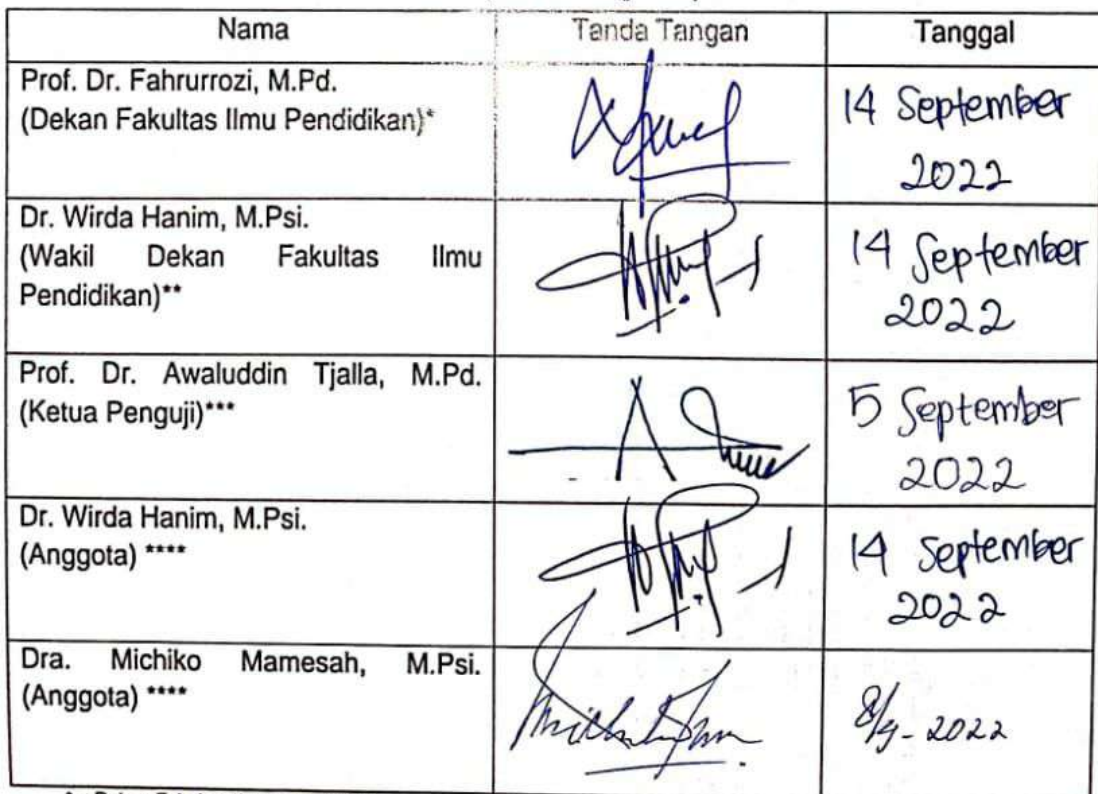 Nama Tanda Tangan Tanggal
Prof. Dr. Fahrurrozi, M.Pd.
(Dekan Fakultas Ilmu Pendidikan)*
14 September
2022
Dr. Wirda Hanim, M.Psi.
(Wakil Dekan Fakultas Ilmu
Pendidikan)**
14 September
2022
Prof. Dr. Awaluddin Tjalla, M.Pd.
(Ketua Penguji)***
5 September
2022
Dr. Wirda Hanim, M.Psi.
(Anggota) ****
14 September
2022
Dra. Michiko Mamesah, M.Psi.
(Anggota) ****
8/9-2022